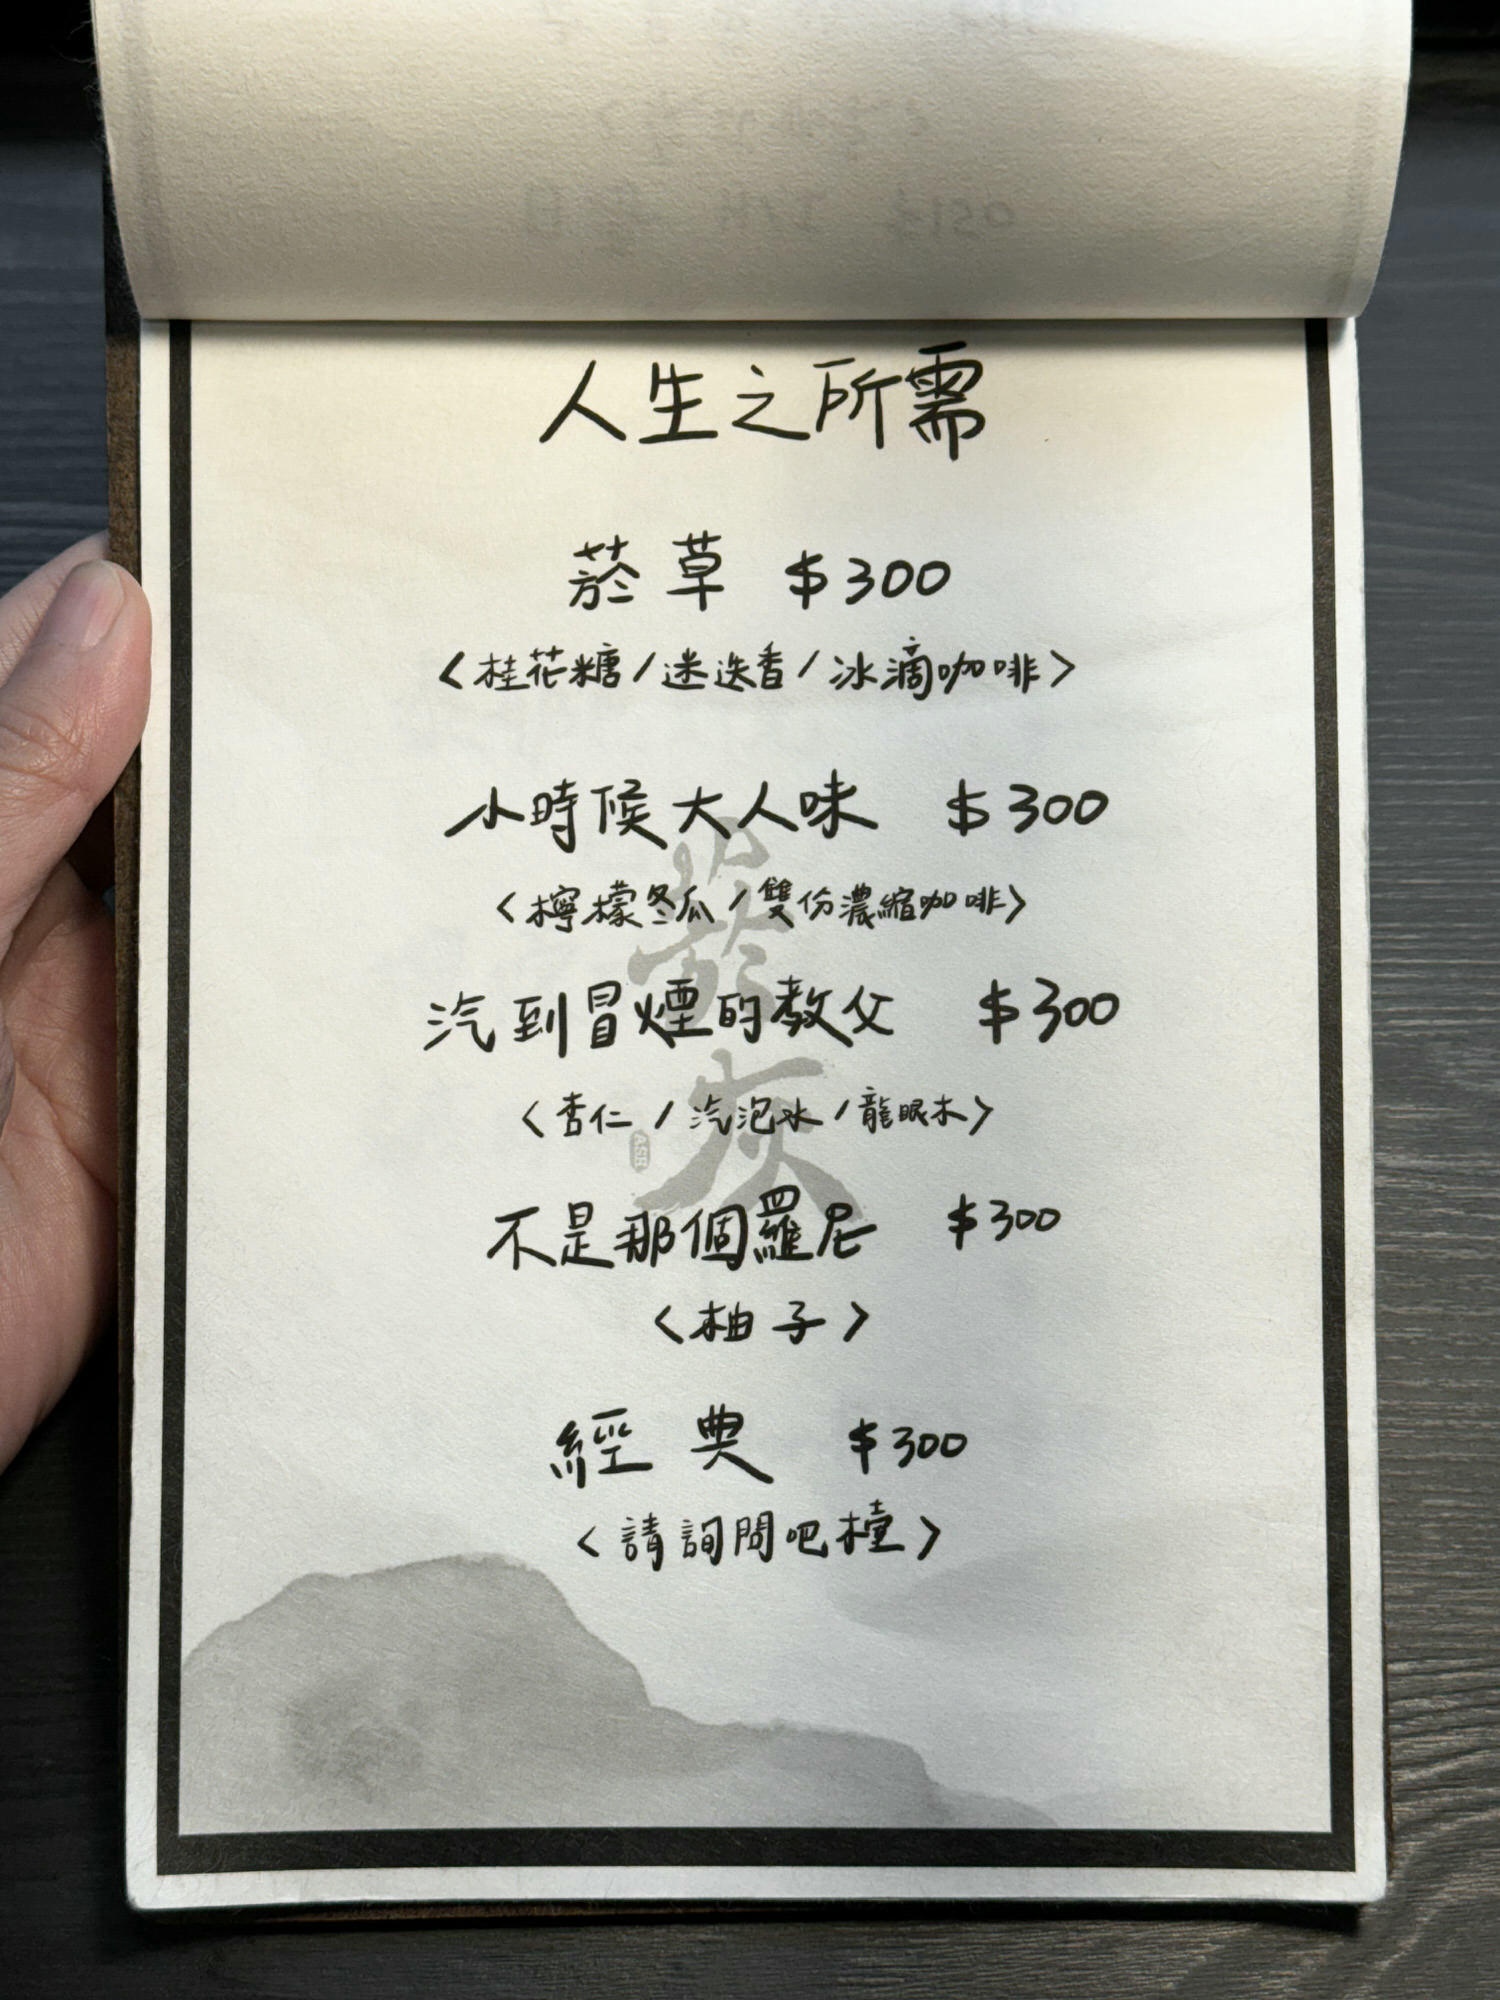 人生之所需
菸草 $300
<桂花糖/迷迭香/冰滴咖啡>
小時候大人味 $300
<檸檬冬瓜/雙份濃縮咖啡>
汽到冒煙的教父 $300
<杏仁/汽泡水/龍眼木>
不是那個羅尼 $300
<柚子>
經典 $300
<請詢問吧檯>
菸灰
ASH